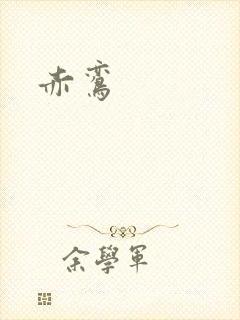 赤鸞
余學軍